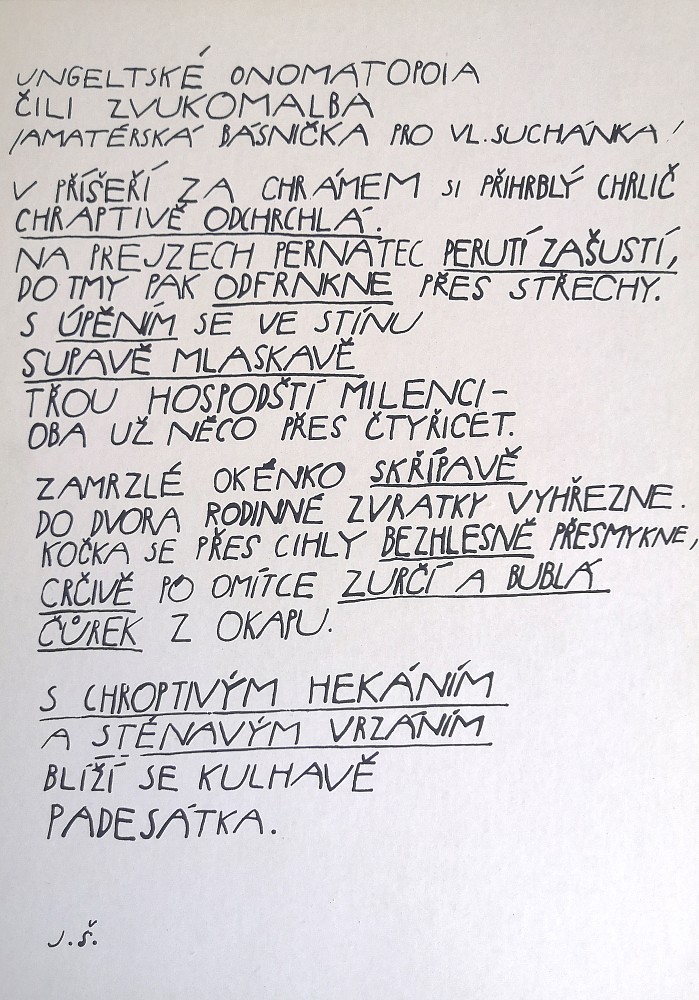 UNGELTSKÉ ONOMATOPOIA
ČILI ZVUKOMALBA
/AMATÉRSKÁ BÁSNIČKA PRO VL. SUCHÁNKA/
V PŘÍŠEŘÍ ZA CHRÁMEM SI PŘIHRBLÝ CHRLIČ
CHRAPTIVĚ ODCHRCHLÁ.
NA PREJZECH PERNATEC PERUTÍ ZAŠUSTÍ,
DO TMY PAK ODFRNKNE PŘES STŘECHY.
S ÚPĚNÍM SE VE STÍNU
SUPAVĚ MLASKAVĚ
TŘOU HOSPODŠTÍ MILENCI -
OBA UŽ NĚCO PŘES ČTYŘICET.
ZAMRZLÉ OKÉNKO SKŘÍPAVĚ
DO DVORA RODINNÉ ZVRATKY VYHŘEZNE.
KOČKA SE PŘES CIHLY BEZHLESNĚ PŘESMYKNE,
CRČIVĚ PO OMÍTCE ZURČÍ A BUBLÁ
ČŮREK Z OKAPU.
S CHROPTIVÝM HEKÁNÍM
A STÉNAVÝM VRZÁNÍM
BLÍŽÍ SE KULHAVĚ
PADESÁTKA.
J.Š.